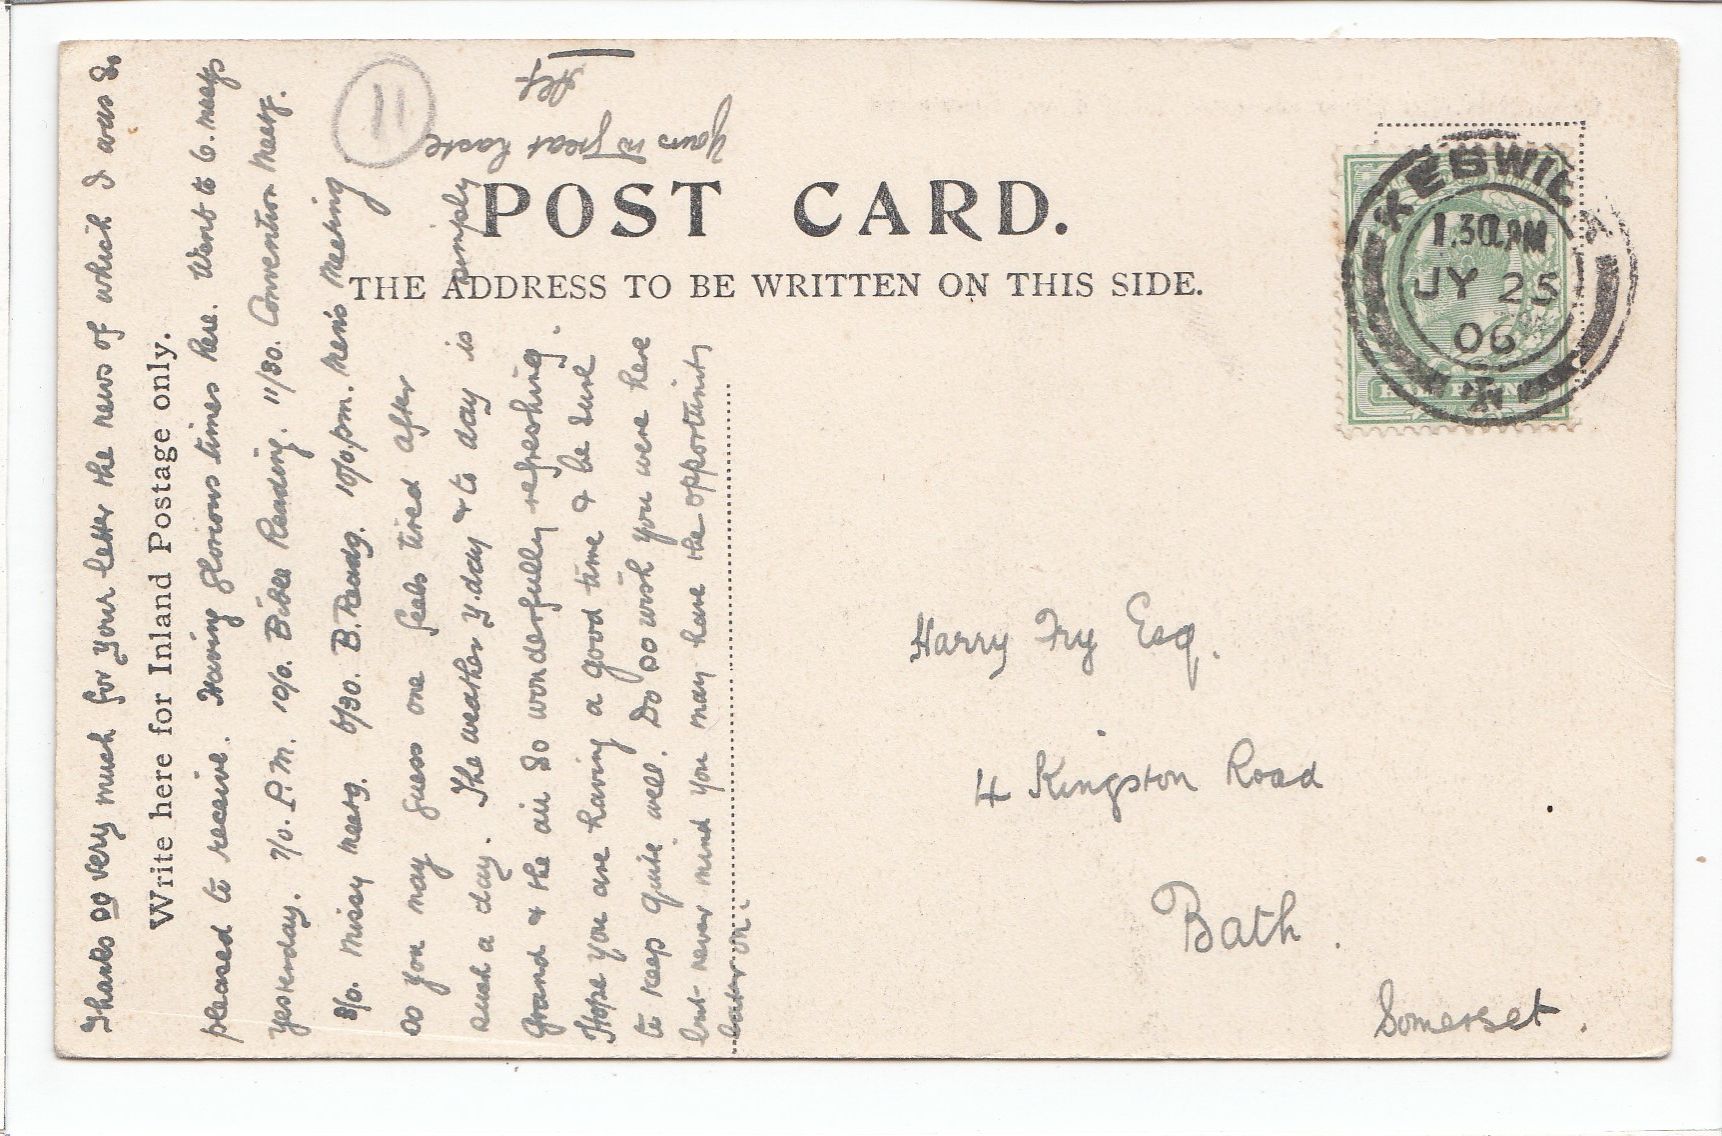 POST CARD.
THE ADDRESS TO BE WRITTEN ON THIS SIDE.
Write here for Inland Postage only.
Thanks so very much for your letter the news of which I was so
pleased to receive. Having glorious times here. Went to 6. meetgs
yesterday. 7/0. P.M. 10/0. Bible Reading. 11/30. Convention Meetg.
3/0. Missy Meetg. 6/30. B. Readg. 10/0. pm. Men's Meeting
so you may guess one feels tired after
such a day. The weather y.day & to day is simply
grand & the air so wonderfully refreshing.
Hope you are having a good time & be sure
to keep quite well. Do so wish you were here
but never mind you may have the opportunity
later on.
Yours in great haste
Alf
11
KESWICK
1.30 PM
JY 25
06
Harry Fry Esq.
4 Kingston Road
Bath.
Somerset.